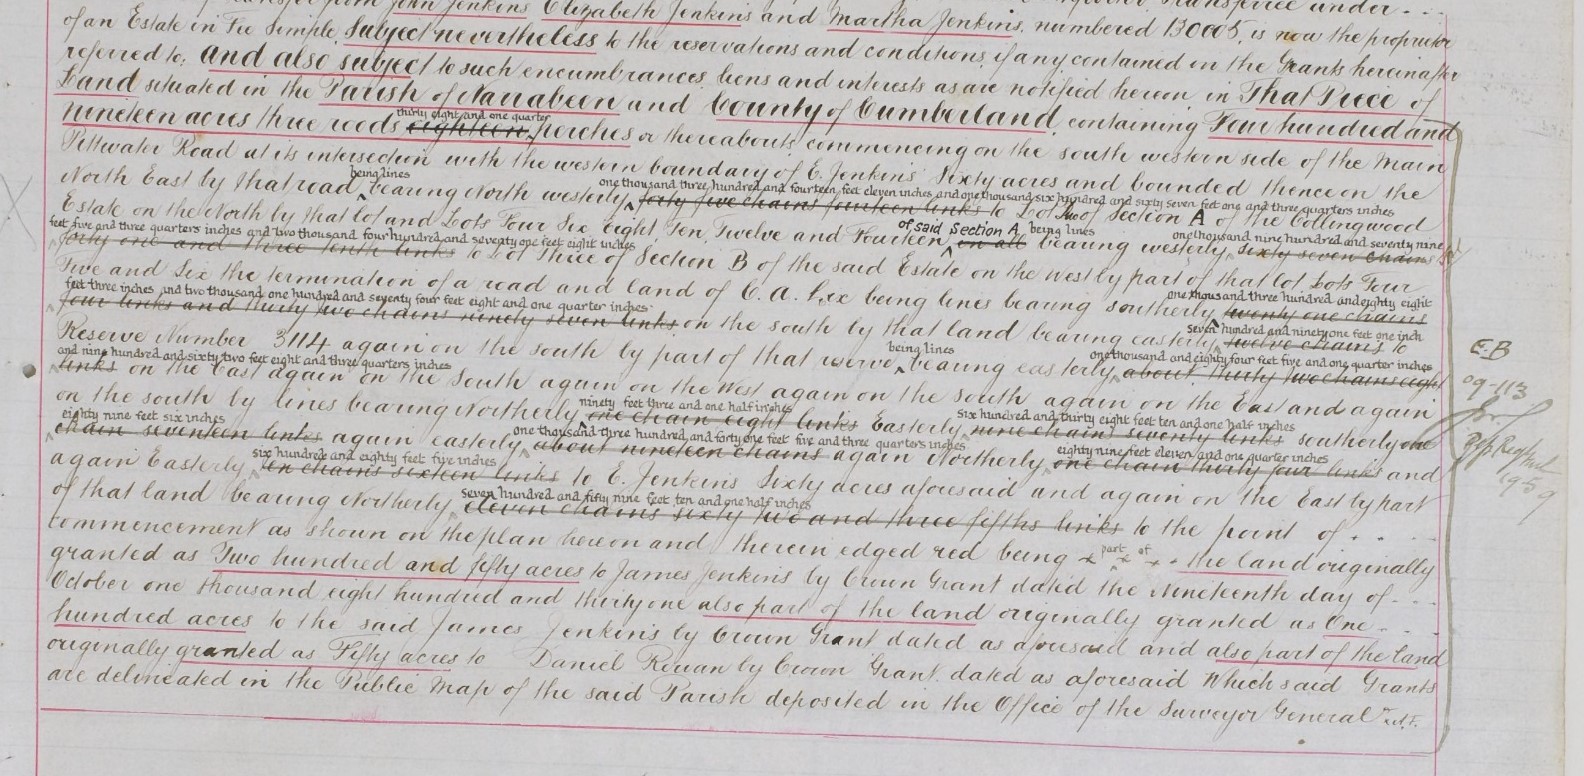 John Jenkins Elizabeth Jenkins and Martha Jenkins, numbered 130005, is now the proprietor
of an Estate in Fee Simple, Subject nevertheless to the reservations and conditions, if any, contained in the Grants hereinafter
referred to; and also subject to such encumbrances liens and interests as are notified hereon in That Piece of
Land situated in the Parish of Narrabeen and County of Cumberland, containing Four hundred and
thirty eight and one quarter
nineteen acres three roods eighteen perches or thereabouts commencing on the south western side of the Main
Pittwater Road at its intersection with the western boundary of E. Jenkins' Sixty acres and bounded thence on the
being lines
North East by that road bearing North westerly forty five chains fourteen links to Lot Two of Section A of the Collingwood
one thousand three hundred and fourteen feet eleven inches and one thousand six hundred and sixty seven feet one and three quarters inches
Estate on the North by that lot and Lots Four Six Eight Ten Twelve and Fourteen on all bearing westerly sixty seven chains
of said Section A being lines
one thousand nine hundred and seventy nine
feet five and three quarters inches and two thousand four hundred and seventy one feet eight inches
forty one and three tenth links to Lot Three of Section B of the said Estate on the West by part of that lot, Lots Four
Five and Six the termination of a road and land of C. A. being lines bearing southerly twenty one chains
one thousand three hundred and eighty eight
feet three inches and two thousand one hundred and seventy four feet eight and one quarter inches
four links and thirty two chains ninety seven links on the south by that land bearing easterly twelve chains to
seven hundred and ninety one feet one inch
Reserve Number 3114 again on the south by part of that reserve bearing easterly about thirty two chains eight
being lines
one thousand and eighty four feet five and one quarter inches
and nine hundred and sixty two feet eight and three quarters inches
links on the East again on the South again on the West again on the south again on the East and again
on the south by lines bearing Northerly one chain eight links Easterly nine chains seventy links southerly one
ninety feet three and one half inches
six hundred and thirty eight feet ten and one half inches
eighty nine feet six inches
chain seventeen links again easterly about nineteen chains again Northerly one chain thirty four links and
one thousand three hundred and forty one feet five and three quarters inches
eighty nine feet eleven and one quarter inches
again Easterly ten chains sixteen links to E. Jenkins Sixty acres aforesaid and again on the East by part
six hundred and eighty feet five inches
of that land bearing Northerly eleven chains sixty two and three fifths links to the point of
seven hundred and fifty nine feet ten and one half inches
commencement as shown on the plan hereon and therein edged red being part of the land originally
granted as Two hundred and fifty acres to James Jenkins by Crown Grant dated the Nineteenth day of
October one thousand eight hundred and thirty one also part of the land originally granted as One
hundred acres to the said James Jenkins by Crown Grant dated as aforesaid and also part of the land
originally granted as Fifty acres to Daniel Rouan by Crown Grant dated as aforesaid Which said Grants
are delineated in the Public Map of the said Parish deposited in the Office of the Surveyor General
E.B
09-113
1959